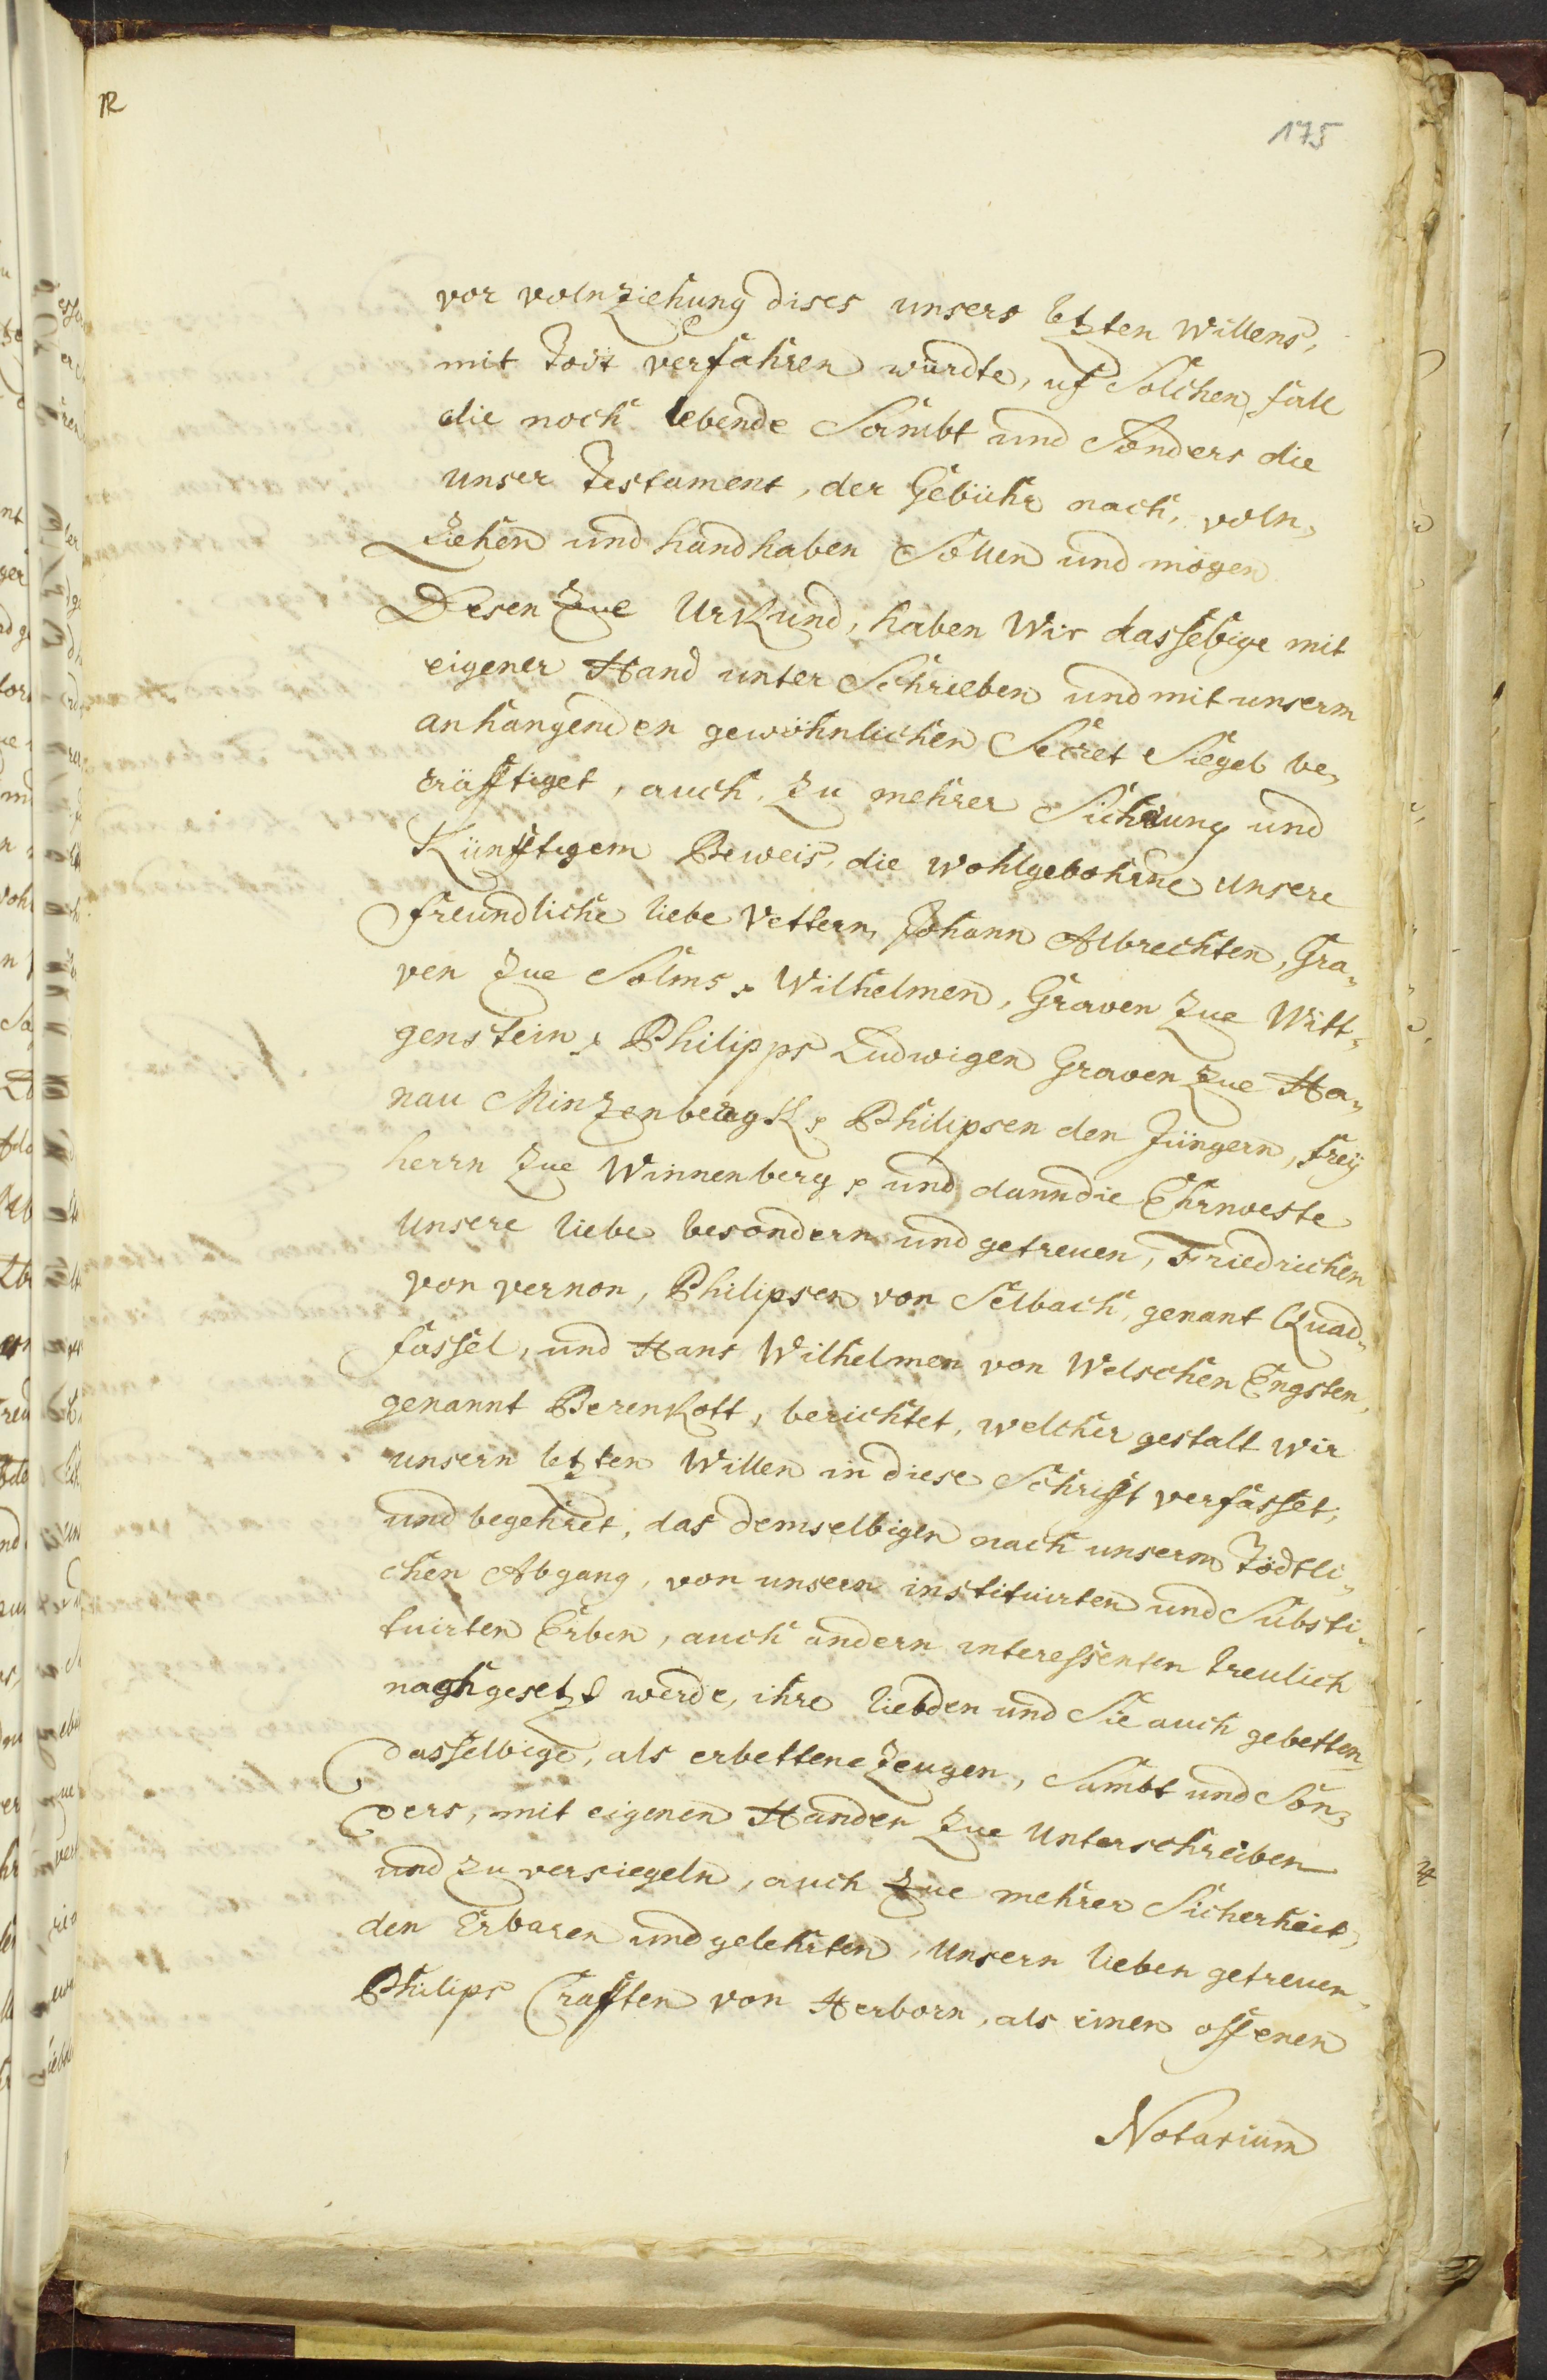 12
175
vor volnziehung dises unsers letzten Willens,
mit Todt verfahren würdte, uf Solchen fall
die noch lebende Sambt und Sonders die
unser Testament, der Gebühr nach, voln,
Ziehen und handhaben Sollen und mögen.
Desen Zue Urkund, haben Wir dasselbige mit
eigener Hand unter Schrieben und mit unserm
anhangenden gewöhnlichen Secret Siegel be,
cräfftiget, auch, zu mehrer Sicherung und
Künfftigem Beweis, die wohlgebohrne unsere
freundliche liebe Vettern, Johann Albrechten, Gra„
ven Zue Solms p Wilhelmen, Graven Zue Witt„
genstein p Philipps Ludwigen Graven Zue Ha„
nau Minzenbergk p Philipsen den Jüngern, frey
herrn Zue Winnenberg p und dann die Ehrnveste
unsere liebe besondern und getreuen, Friedrichen
von vernon, Philipsen von Selbach, genant Quad„
fassel, und Hans Wilhelmen von Welschen Engsten,
genannt Berenkott, berichtet, welcher gestalt wir
unsern letzten Willen in diese Schrifft verfasset,
und begehret, das demselbigen nach unserm Tödtli„
chen Abgang, von unsern instituirten und Substi„
tuirten Erben, auch andern interessenten treulich
nachgesetzt werde, ihre liebden und Sie auch gebetten,
dasselbige, als erbettene Zeugen, Sambt und Son„
ders, mit eigenen Handen Zue unterschreiben
und zu versiegeln, auch Zue mehrer Sicherheit,
den Erbaren und gelehrten, unsern lieben getreuen,
Philips Crafften von Herborn, als einen offenen
Notarium